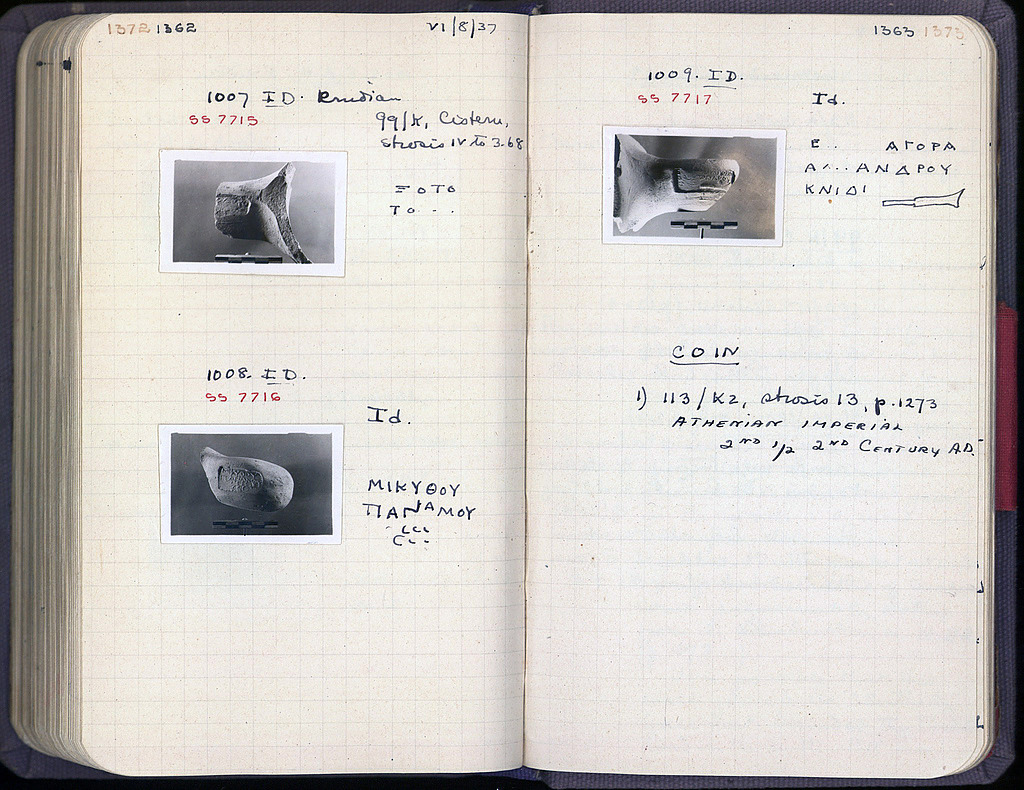 1372 1362
VI/8/37
1007 ID. Knidian
SS 7715
99/K, Cistern,
strosis IV to 3.68
ΞΟΤΟ
ΤΟ...
1008. ID.
SS 7716
Id.
ΜΙΚΥΘΟΥ
ΠΑΝΑΜΟΥ
1363 1373
1009. ID.
SS 7717
Id.
Ε.. ΑΓΟΡΑ
ΑΛ...ΑΝΔΡΟΥ
ΚΝΙΔΙ
COIN
1) 113/K2, strosis 13, p.1273
ATHENIAN IMPERIAL
2ND 1/2 2ND CENTURY A.D.